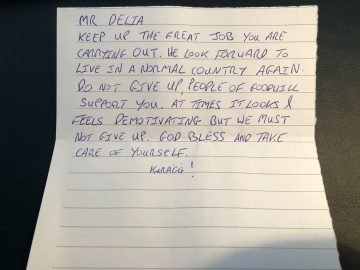 MR DELIA
KEEP UP THE GREAT JOB YOU ARE
CARRYING OUT. WE LOOK FORWARD TO
LIVE IN A NORMAL COUNTRY AGAIN.
DO NOT GIVE UP, PEOPLE OF GOODWILL
SUPPORT YOU. AT TIMES IT LOOKS &
FEELS DEMOTIVATING BUT WE MUST
NOT GIVE UP. GOD BLESS AND TAKE
CARE OF YOURSELF.
KURAGG!